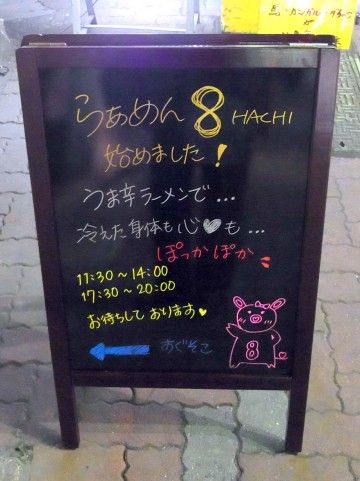 らぁめん 8 HACHI
始めました!
うま辛ラーメンで...
冷えた身体も心♥も...
ぽっかぽか
11:30～14:00
17:30～20:00
お待ちして おります♥
← すぐそこ
8